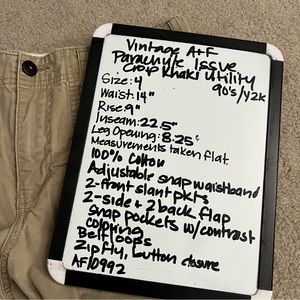 Vintage A+F
Parachute Issue
Crop Khaki Utility
90's/Y2K
Size: 4
Waist: 14"
Rise: 9"
Inseam: 22.5"
Leg Opening: 8.25"
Measurements taken flat.
100% Cotton
Adjustable snap waistband
2-front slant pkts
2-side & 2 back flap
snap pockets w/contrast
coloring
Belt loops
Zip fly, button closure
AF10992